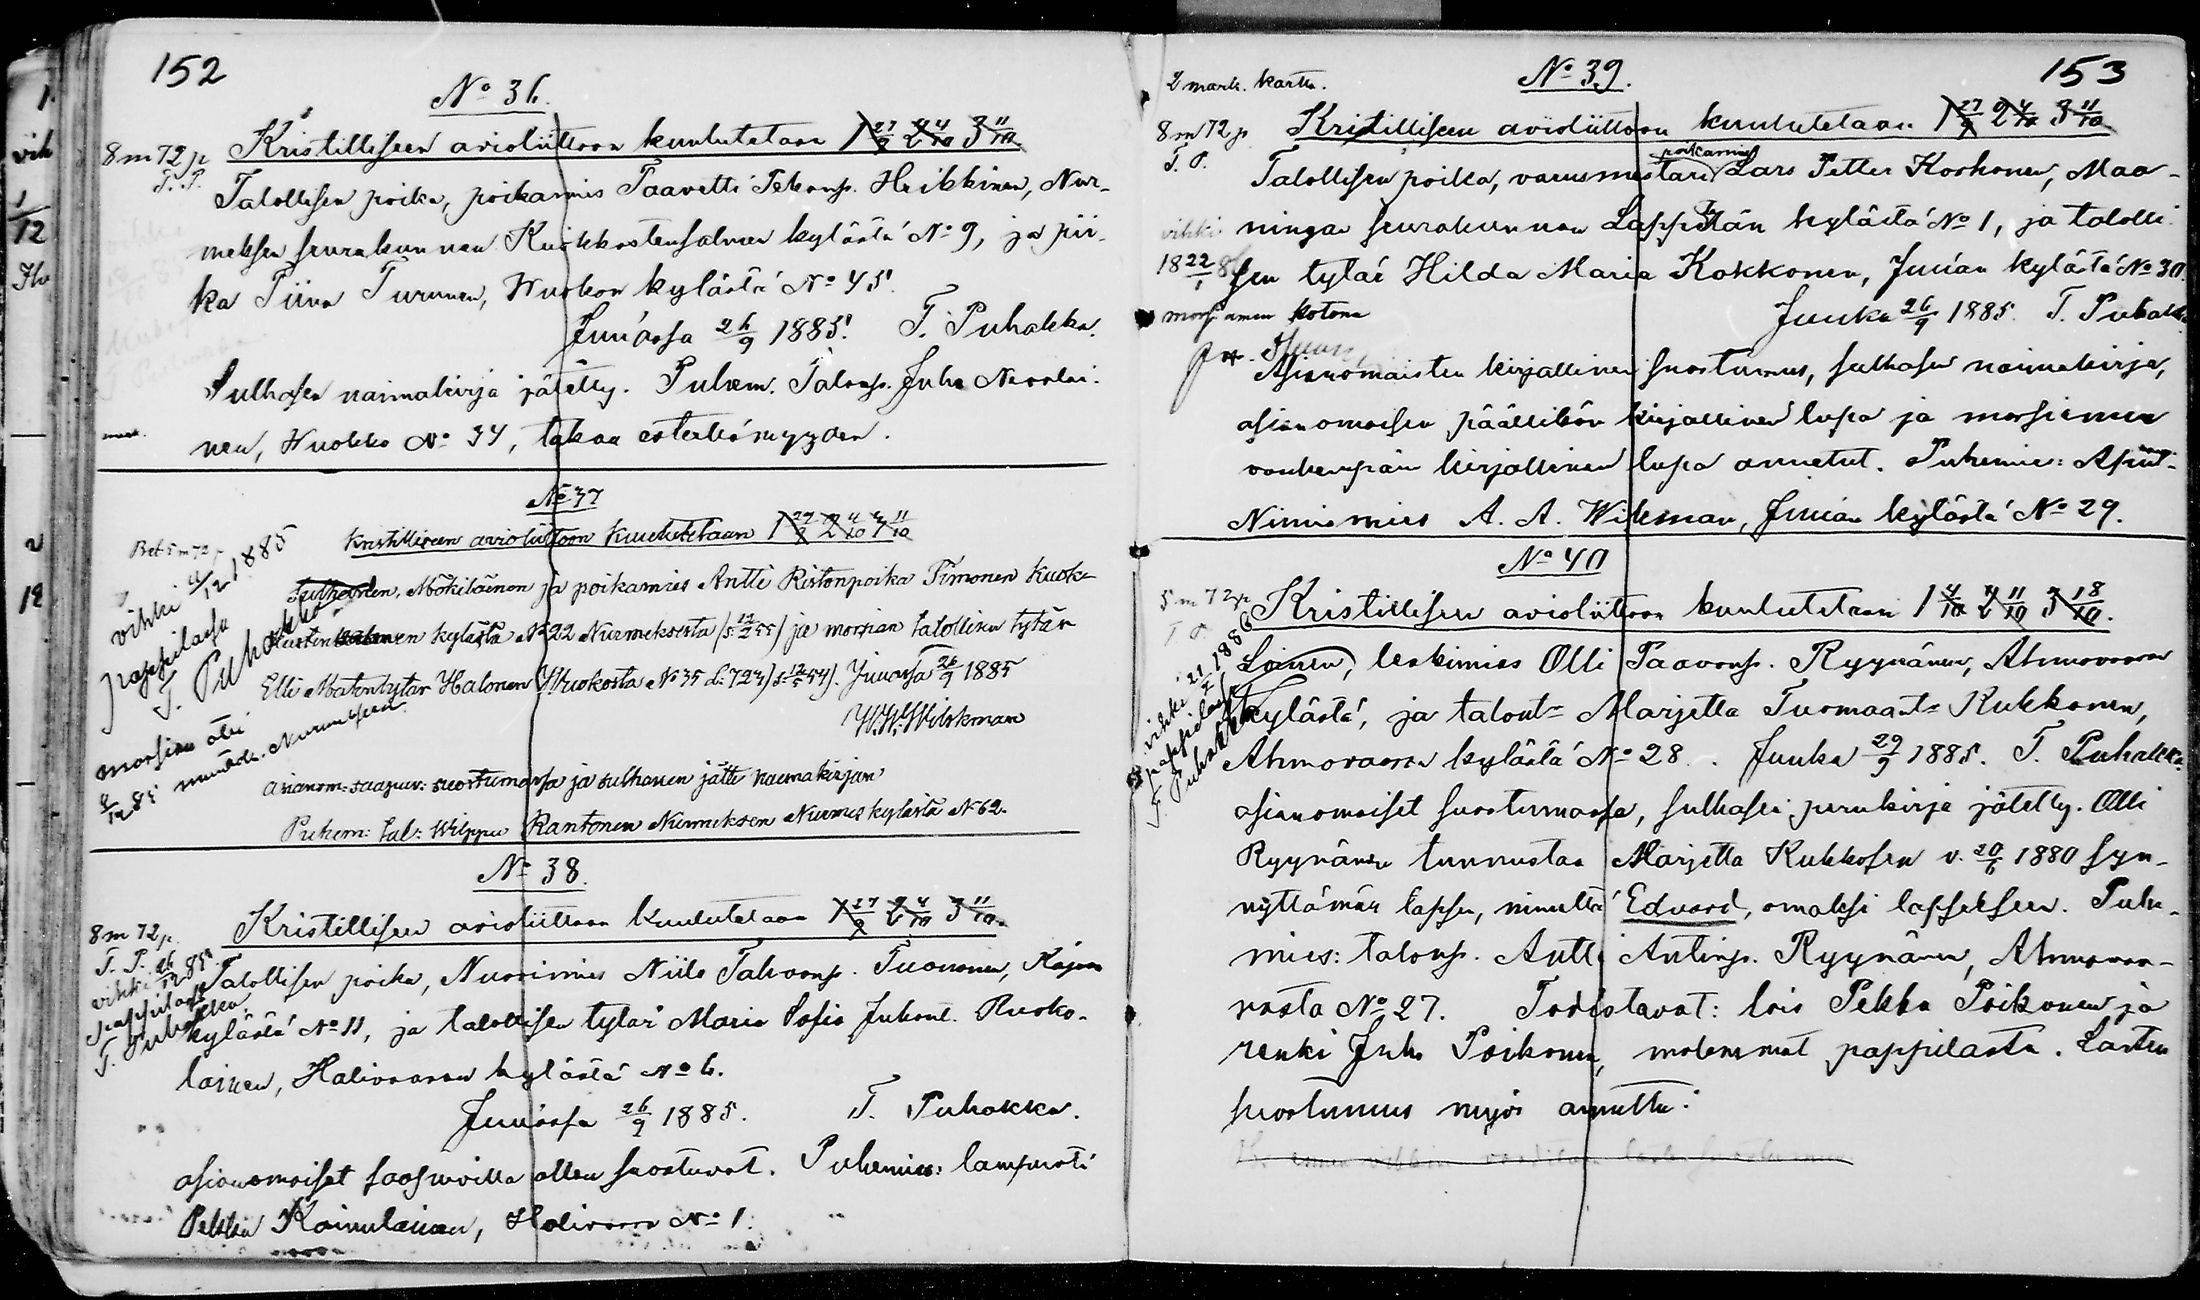 152
No 36.
8 m 72 p
T. P.
Kristilliseen avioliittoon kuulutetaan 1 27/9 2 4/10 3 11/10
Talollisen poika, poikamies Taavetti Pekanp. Heikkinen, Nur-
meksen seurakunnan Kuokkastensalmen kylästä No 9, ja pii-
ka Tiina Turunen, Wuokon kylästä No 45.
Juuassa 26/9 1885. T. Puhakka.
Sulhasen naimakirja jätetty. Puhem. Talonp. Juho Nevalai-
nen, Wuokko No 34, takaa esteettömyyden.
No 37
Bet. 5 m 72 p
Kristilliseen avioliittoon Kuulutetaan 1 27/9 2 4/10 3 11/10
vihki 4/12 1885
pappilassa
T. Puhakka
Mökiläinen ja poikamies Antti Ristonpoika Timonen Kuok-
kylästä No 22 Nurmeksesta /s. 12/2 55/ ja morsian talollisen tytär
Elli Matintytär Halonen Wuokosta No 35 s. 724) s. 12/5 54). Juuassa 26/9 1885
W.W. Wilskman
morsian otti
4/12 85 muutok. Nurmekseen
asianom: saapuv: suostumassa ja sulhanen jätti naimakirjan
Puhem: tal: Wilppu Rantonen Nurmeksen Nurmeskylästä No 62.
No 38.
8 m 72 p.
T. P.
Kristilliseen avioliittoon kuulutetaan 1 27/9 2 4/10 3 11/10
vihki 26/12 85
pappilassa
T. Puhakka
Talollisen poika, Nuorimies Niilo Tahvonp. Tuononen, Kajoon
kylästä No 11, ja talollisen tytär Maria Sofia Juhont. Ruoko-
lainen, Halivaaran kylästä No 6.
Juuassa 26/9 1885. T. Puhakka.
asianomaiset saapuvilla ollen suostuvat. Puhemies: lampuoti
Pekka Kainulainen, Halivaara No 1.
153
2 mark. kartta.
No 39.
8 m 72 p
T. P.
Kristilliseen avioliittoon kuulutetaan 1 27/9 2 4/10 3 11/10
poikamies
Talollisen poika, varusmestari Lars Petter Korhonen, Maa-
ningan seurakunnan kylästä No 1, ja talolli-
sen tytär Hilda Maria Kokkonen, Juuan kylästä No 30.
vihki
18 22/1 8
morsiamen kotona
Juuka 26/9 1885. T. Puhakka
Asianomaisten kirjallinen suostumus, sulhasen naimakirja,
asianomaisen päällikön kirjallinen lupa ja morsiamen
vanhempain kirjallinen lupa annetut. Puhemies:
Nimismies A. A. Wikman, Juuan kylästä No 29.
No 40
5 m 72 p
T. P.
Kristilliseen avioliittoon kuulutetaan 1 4/10 2 11/10 3 18/10.
vihki 21/2 1886
pappilassa
T. Puhakka
Loinen, leskimies Olli Paavonp. Ryynänen, Ahmovaaran
kylästä, ja talont. Marjetta Tuomaant. Kukkonen,
Ahmovaaran kylästä No 28. Juuka 29/9 1885. T. Puhakka.
asianomaiset suostumassa, sulhasen perukirja jätetty. Olli
Ryynänen tunnustaa Marjetta Kukkosen v. 20/6 1880 syn-
nyttämän lapsen, nimeltä Edvard, omaksi lapsekseen. Puhe-
mies: talonp. Antti Antinp. Ryynänen, Ahmovaa-
rasta No 27. Todistavat: lois Pekka Poikonen ja
renki Juho Poikonen, molemmat pappilasta. Lasten
suostumus myös annettu.